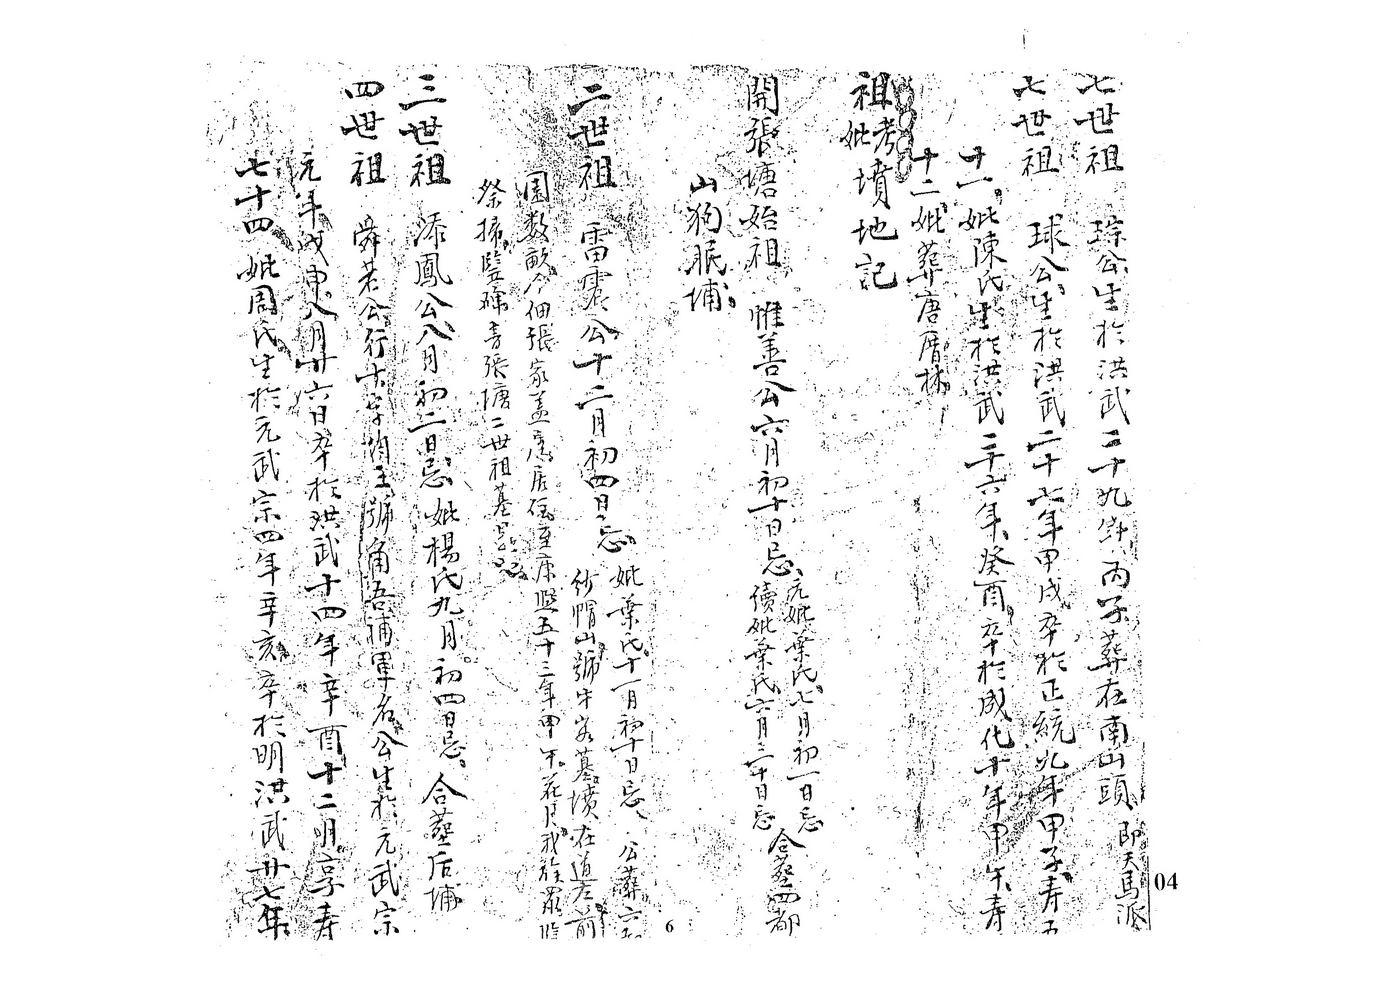 七世祖 琮公生於洪武二十九年丙子葬在南山頭即天馬派
七世祖 球公生於洪武二十七年甲戌卒於正統九年甲子壽五
十一妣陳氏生於洪武二十六年癸酉卒於成化十年甲午壽
十二妣葬唐厝林
祖考妣墳地記
開張塘始祖 惟善公六月初十日忌元妣葉氏七月初一日忌續妣葉氏六月三十日忌合葬四都
山狗眠埔
二世祖 雷震公十二月初四日忌妣葉氏十一月初十日忌公葬六
紗帽山號牛墓墳在道左前
園数畝今佃張家盖房居住至康熙五十三年甲午花月我族眾
祭掃豎碑書張塘二世祖墓
三世祖 添鳳公八月初二日忌妣楊氏九月初四日忌合葬后埔
四世祖 舜若公行十字均玉號角吾補軍名公生於元武宗
元年戊申八月廿六日卒於洪武十四年辛酉十二月享壽
七十四妣周氏生於元武宗四年辛亥卒於明洪武廿七年
6
04